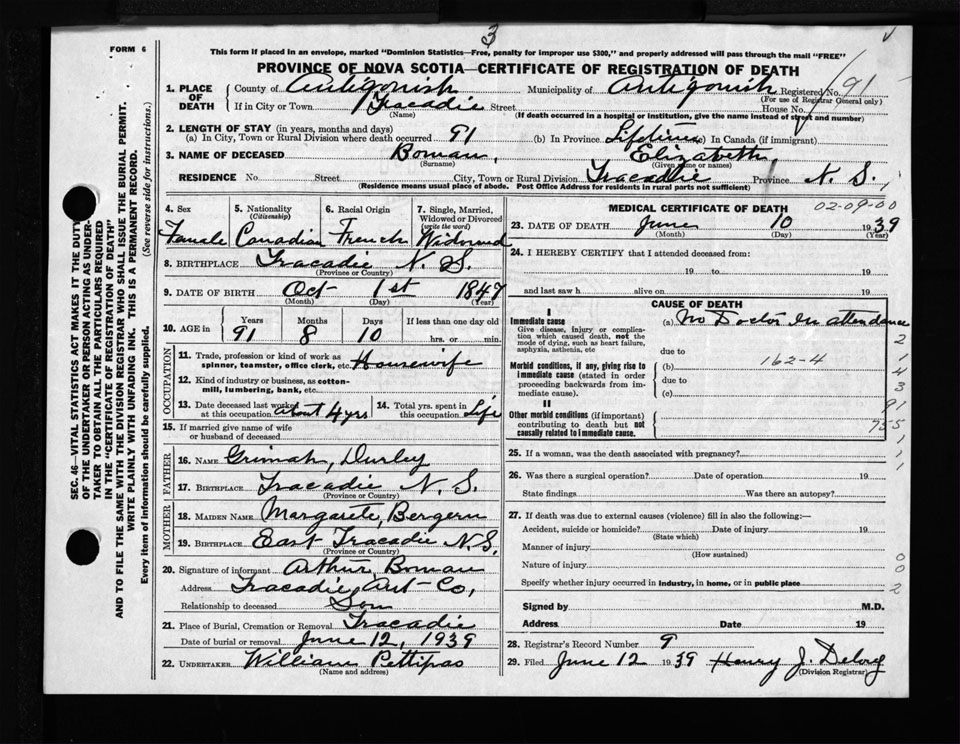 3
FORM 6
This form if placed in an envelope, marked "Dominion Statistics—Free, penalty for improper use $300," and properly addressed will pass through the mail "FREE"
PROVINCE OF NOVA SCOTIA—CERTIFICATE OF REGISTRATION OF DEATH
1. PLACE OF DEATH
County of Antigonish Municipality of Antigonish Registered No. 91
(For use of Registrar General only)
If in City or Town Tracadie Street House No.
(Name) (If death occurred in a hospital or institution, give the name instead of street and number)
2. LENGTH OF STAY (in years, months and days)
(a) In City, Town or Rural Division where death occurred 91 (b) In Province Lifetime (c) In Canada (if immigrant)
3. NAME OF DECEASED Boman, Elizabeth,
(Surname) (Given name or names)
RESIDENCE No. Street City, Town or Rural Division Tracadie Province N. S.,
(Residence means usual place of abode. Post Office Address for residents in rural parts not sufficient)
4. Sex
Female
5. Nationality (Citizenship)
Canadian
6. Racial Origin
French
7. Single, Married, Widowed or Divorced (write the word)
Widowed
8. BIRTHPLACE Tracadie N. S.
(Province or Country)
9. DATE OF BIRTH Oct 1st 1847
(Month) (Day) (Year)
10. AGE in Years Months Days If less than one day old
91 8 10 hrs. or min.
OCCUPATION
11. Trade, profession or kind of work as spinner, teamster, office clerk, etc. Housewife
12. Kind of industry or business, as cotton-mill, lumbering, bank, etc.
13. Date deceased last worked at this occupation about 4 yrs
14. Total yrs. spent in this occupation Life
15. If married give name of wife or husband of deceased
FATHER
16. NAME Grimah, Durley
17. BIRTHPLACE Tracadie N. S.
(Province or Country)
MOTHER
18. MAIDEN NAME Margarete, Bergern
19. BIRTHPLACE East Tracadie N.S.
(Province or Country)
20. Signature of informant Arthur, Boman
Address Tracadie, Ant Co,
Relationship to deceased Son
21. Place of Burial, Cremation or Removal Tracadie
Date of burial or removal June 12, 1939
22. UNDERTAKER William Pettipas
(Name and address)
MEDICAL CERTIFICATE OF DEATH
02-09-00
23. DATE OF DEATH June 10 1939
(Month) (Day) (Year)
24. I HEREBY CERTIFY that I attended deceased from:
19 to 19
and last saw h alive on 19
CAUSE OF DEATH
I
Immediate cause
Give disease, injury or complication which caused death, not the mode of dying, such as heart failure, asphyxia, asthenia, etc
(a) No Doctor In attendance
due to
Morbid conditions, if any, giving rise to immediate cause (stated in order proceeding backwards from immediate cause).
(b) 162-4
due to
(c)
II
Other morbid conditions (if important) contributing to death but not causally related to immediate cause.
2
1
4
3
91
755
1
1
25. If a woman, was the death associated with pregnancy?
26. Was there a surgical operation? Date of operation 19
State findings Was there an autopsy?
27. If death was due to external causes (violence) fill in also the following:—
Accident, suicide or homicide? Date of injury 19
(State which)
Manner of injury
(How sustained)
Nature of injury
Specify whether injury occurred in industry, in home, or in public place
0
0
2
Signed by M.D.
Address Date 19
28. Registrar's Record Number 9
29. Filed June 12 1939 Henry J. Delory
(Division Registrar)
SEC. 46—VITAL STATISTICS ACT MAKES IT THE DUTY
OF THE UNDERTAKER OR PERSON ACTING AS UNDER-
TAKER TO OBTAIN ALL THE PARTICULARS REQUIRED
IN THE "CERTIFICATE OF REGISTRATION OF DEATH"
AND TO FILE THE SAME WITH THE DIVISION REGISTRAR WHO SHALL ISSUE THE BURIAL PERMIT.
WRITE PLAINLY WITH UNFADING INK. THIS IS A PERMANENT RECORD.
Every item of information should be carefully supplied. (See reverse side for instructions.)